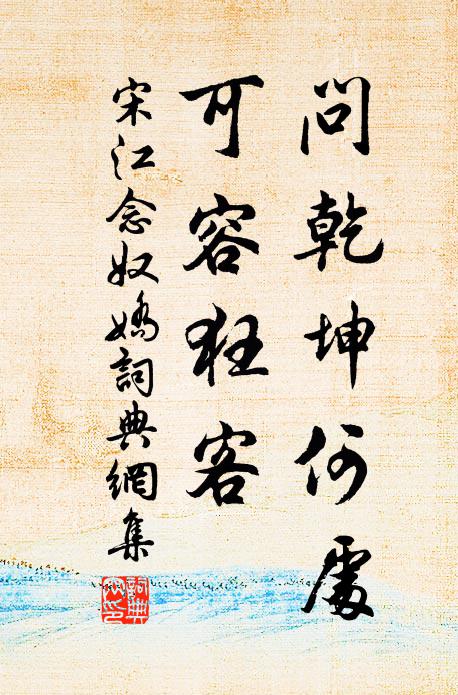 問乾坤何處
可容狂客
宋江念奴嬌詞典網集